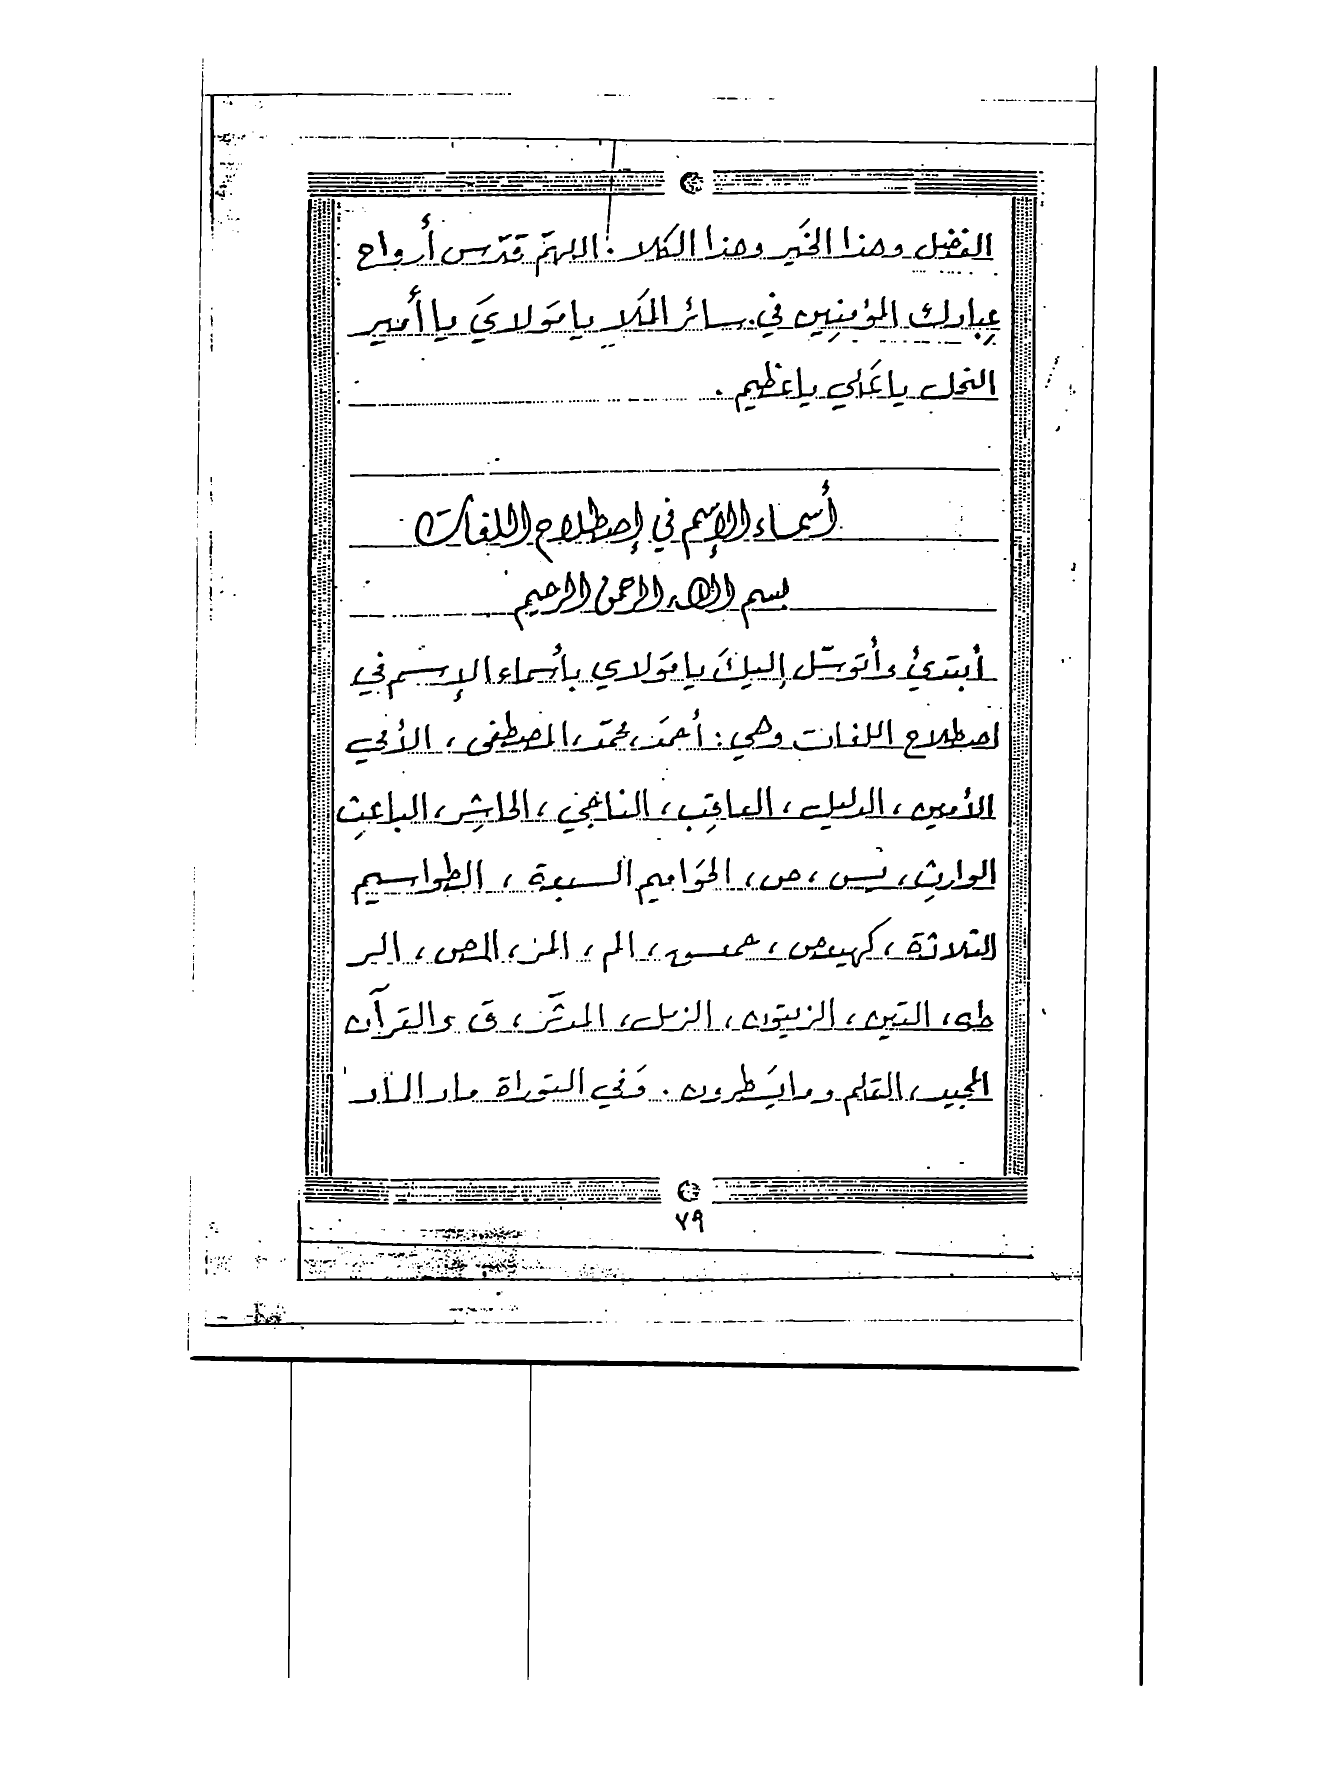 الفضل وهذا الخَير وهذا الكلا . اللهمّ قدّس أرواح
عِبادك المؤمنِين في سائر المَلا يا مَولايَ يا أمير
النحل يا عَلي يا عَظيم .
أسماء الإسم في إصطلاح اللغات
بسم الله الرحمن الرحيم
أبتدئُ وأتوسّل إليكَ يا مَولاي بأسماء الإسم في
اصطلاح اللغات وهي : أحمَد، محمّد، المصطفى ، الأُمّي
الأمين ، الدليل ، العاقِب ، الناجي ، الحاشِر ، الباعِث
الوارِث ، يس ، ص ، الحَواميم السبعة ، الطواسيم
الثلاثة ، كهيعص ، حمعسق ، الم ، المر ، المص ، الر
طه ، التين ، الزيتون ، المزمل ، المدثّر ، ق والقرآن
المجيد ، القلم وما يَسطرون . وَفي التوراة ماد الماد
٧٩